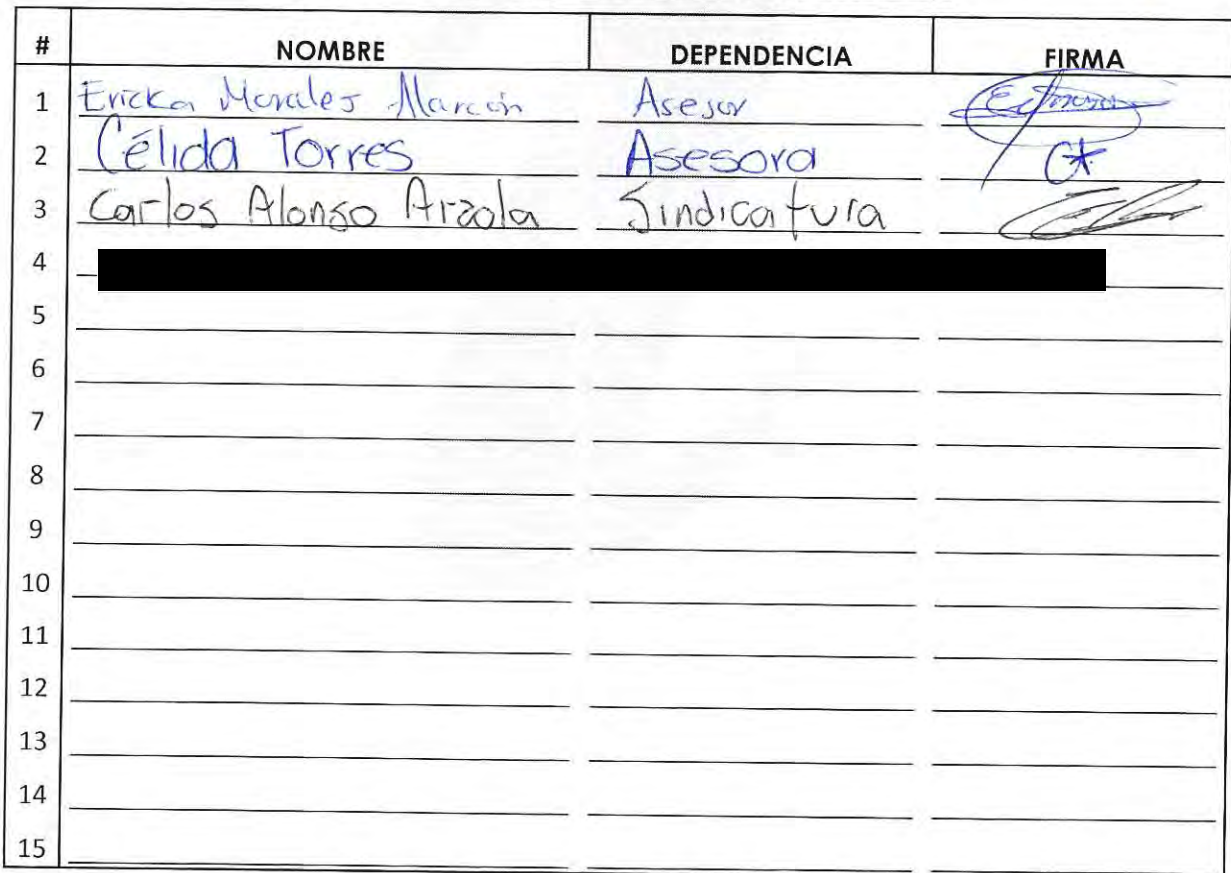 # NOMBRE DEPENDENCIA FIRMA
1 Ericka Morales Alarcón Asesor
2 Célida Torres Asesora
3 Carlos Alonso Arzola Sindicatura
4
5
6
7
8
9
10
11
12
13
14
15